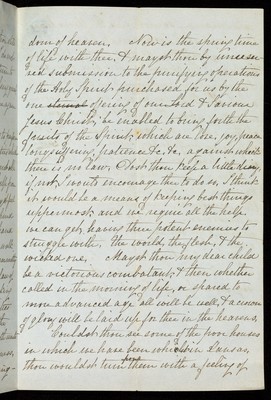 dom of heaven. Now is the spring time
of life with thee, & mayst thou by unreserv-
ed submission to the purifying operations
of the Holy Spirit purchased for us by the
one offering of our Lord & Saviour
Jesus Christ, be enabled to bring forth the
fruits of the Spirit, which are love, joy, peace
longsuffering, patience &c &c, against which
there is no law. Dost thou keep a little diary,
if not, I would encourage thee to do so, I think
it would be a means of keeping best things
uppermost, and we require all the help
we can get, having three potent enemies to
struggle with, the world, the flesh, & the
wicked one. Mayst thou my dear child
be a victorious combatant, & then whether
called in the morning of life, or spared to
more advanced age, all will be well, & a crown
of glory will be laid up for thee in the heavens.
Couldst thou see some of the poor houses
in which we have been in Kansas,
thou wouldst them with a feeling of